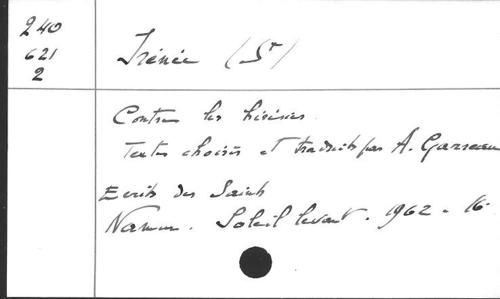 240
621
2
Irénée (St)
Contre les hérésies.
Textes choisis et traduits par A. Garreau
Ecrits des Saints
Namur. Soleil levant. 1962. 16